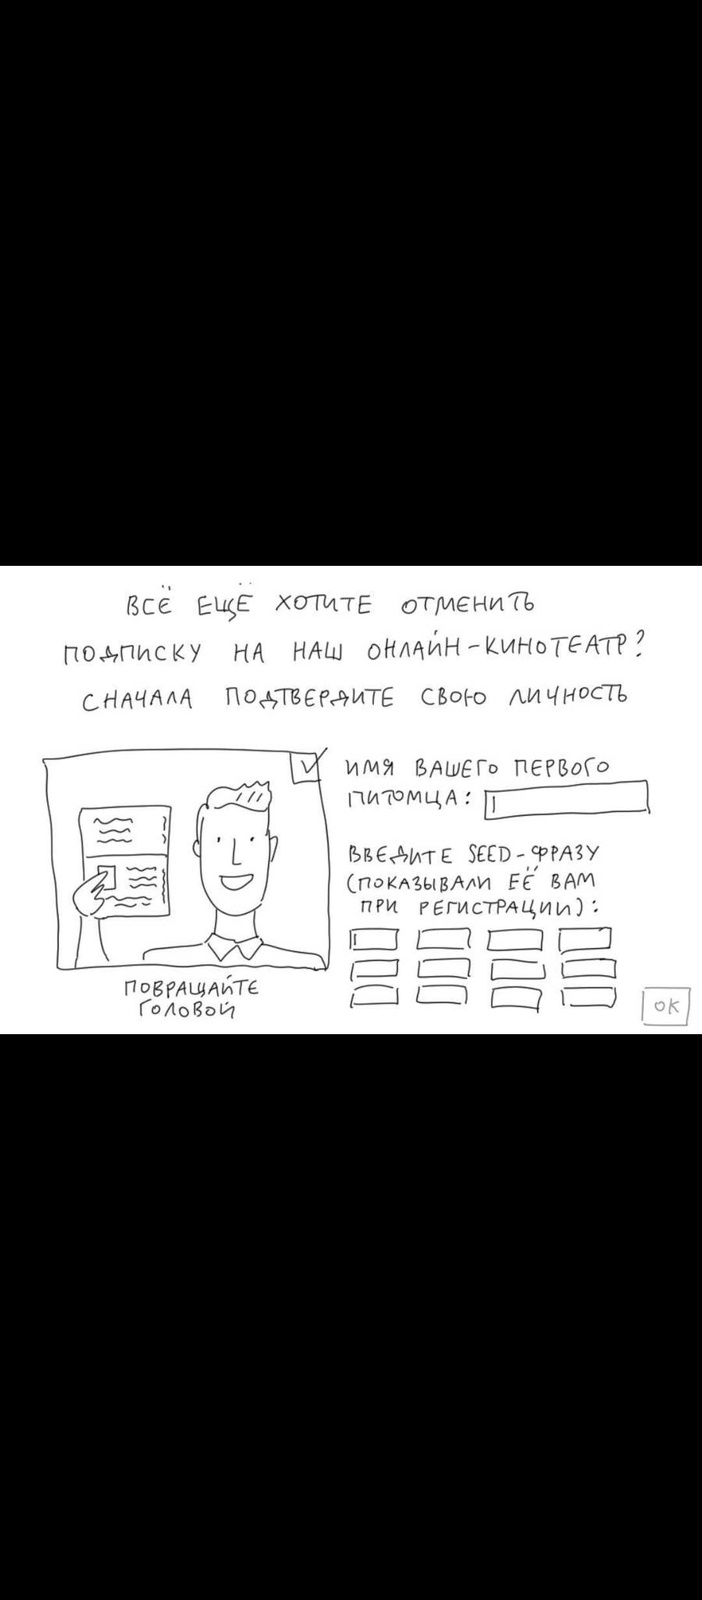 ВСЁ ЕЩЁ ХОТИТЕ ОТМЕНИТЬ
ПОДПИСКУ НА НАШ ОНЛАЙН-КИНОТЕАТР?
СНАЧАЛА ПОДТВЕРДИТЕ СВОЮ ЛИЧНОСТЬ
ИМЯ ВАШЕГО ПЕРВОГО
ПИТОМЦА:
ВВЕДИТЕ SEED-ФРАЗУ
(ПОКАЗЫВАЛИ ЕЁ ВАМ
ПРИ РЕГИСТРАЦИИ):
ПОВРАЩАЙТЕ
ГОЛОВОЙ
ОК